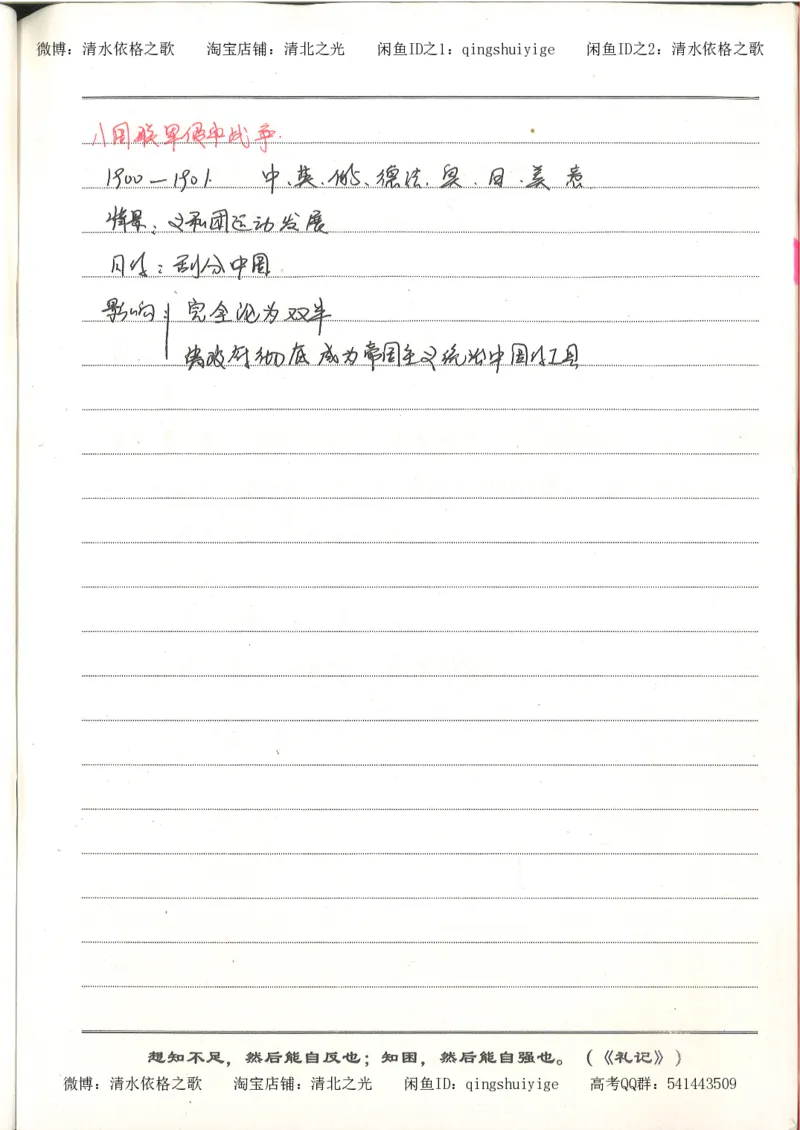 微博：清水依格之歌 淘宝店铺：清北之光 闲鱼ID之1：qingshuiyige 闲鱼ID之2：清水依格之歌
八国联军侵华战争.
1900—1901. 中、英、俄、德、法、奥、日、美、意
背景：义和团运动发展
目的：瓜分中国
影响：完全沦为双半
清政府彻底成为帝国主义统治中国的工具
想知不足，然后能自反也；知困，然后能自强也。（《礼记》）
微博：清水依格之歌 淘宝店铺：清北之光 闲鱼ID：qingshuiyige 高考QQ群：541443509